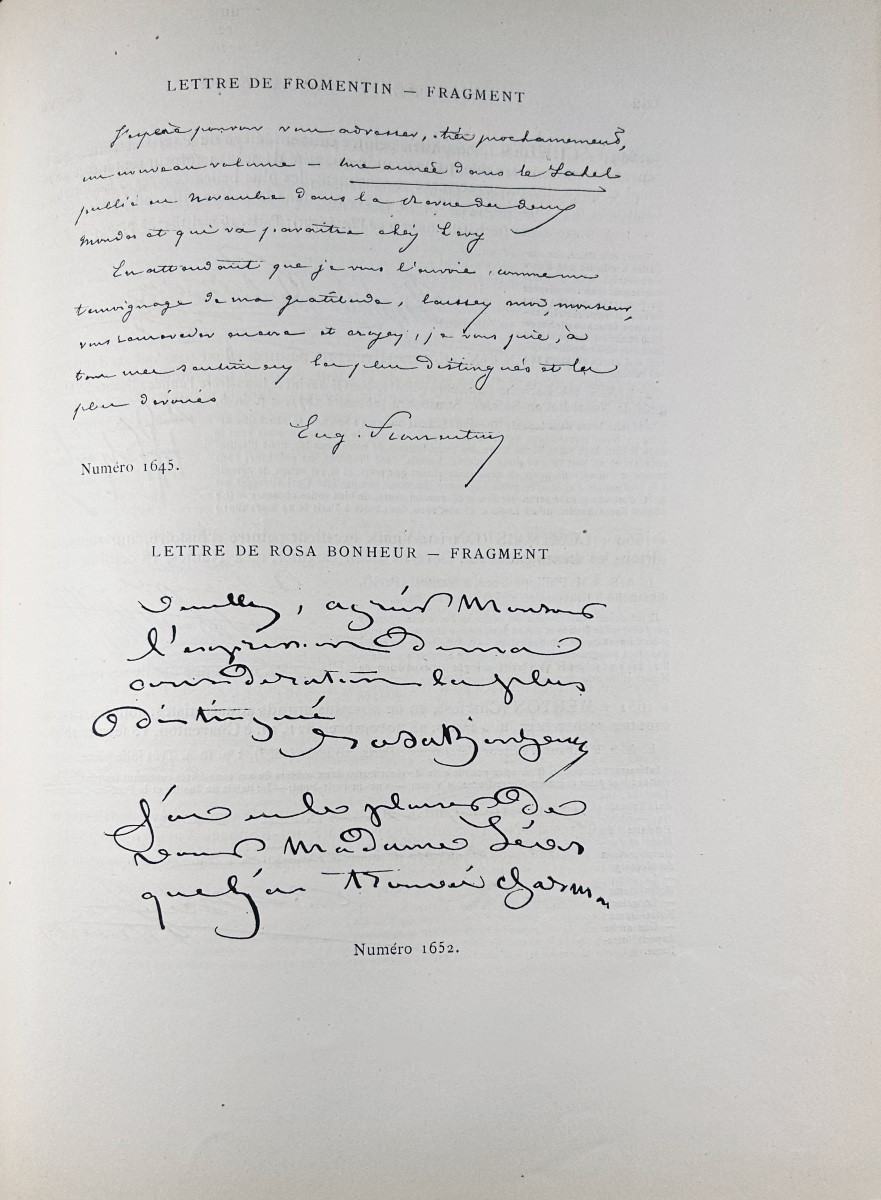 LETTRE DE FROMENTIN — FRAGMENT
J'espère pouvoir vous adresser, très prochainement,
un nouveau volume — Une année dans le Sahel
publié en Novembre dans la Revue des deux
Mondes et qui va paraître chez Levy
En attendant que je vous l'envoie, comme un
témoignage de ma gratitude, laissez moi, monsieur,
vous remercier encore et croyez, je vous prie, à
tous mes sentimens les plus distingués et les
plus dévoués
Eug. Fromentin
Numéro 1645.
LETTRE DE ROSA BONHEUR — FRAGMENT
Veuillez, agréer Monsieur
l'expression de ma
considération la plus
distinguée
Rosa Bonheur
J'ai eu le plaisir de
voir Madame
que j'ai trouvée
Numéro 1652.